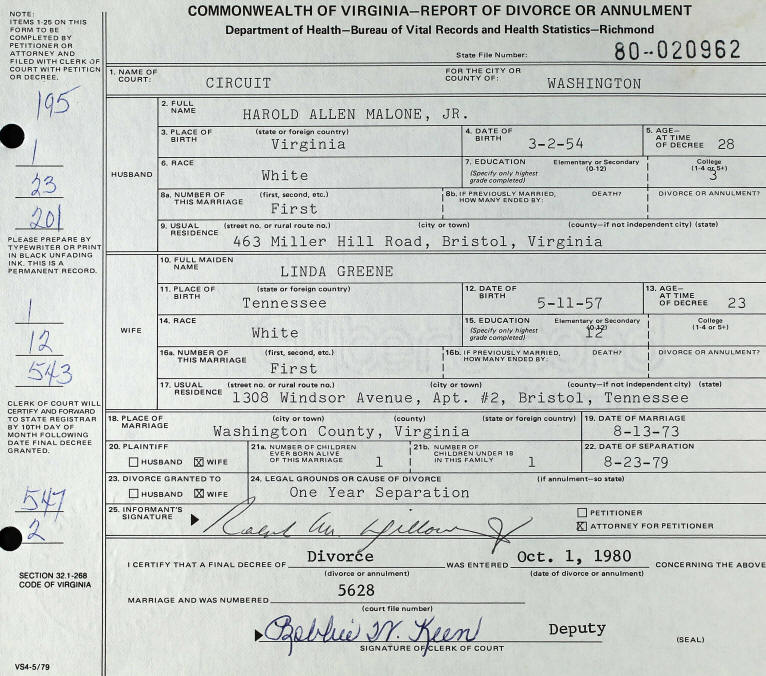 COMMONWEALTH OF VIRGINIA—REPORT OF DIVORCE OR ANNULMENT
Department of Health—Bureau of Vital Records and Health Statistics—Richmond
State File Number: 80--020962
NOTE:
ITEMS 1-25 ON THIS
FORM TO BE
COMPLETED BY
PETITIONER OR
ATTORNEY AND
FILED WITH CLERK OF
COURT WITH PETITION
OR DECREE.
195
1
23
201
PLEASE PREPARE BY
TYPEWRITER OR PRINT
IN BLACK UNFADING
INK. THIS IS A
PERMANENT RECORD.
1
12
543
CLERK OF COURT WILL
CERTIFY AND FORWARD
TO STATE REGISTRAR
BY 10TH DAY OF
MONTH FOLLOWING
DATE FINAL DECREE
GRANTED.
547
2
SECTION 32.1-268
CODE OF VIRGINIA
VS4-5/79
1. NAME OF COURT: CIRCUIT FOR THE CITY OR COUNTY OF: WASHINGTON
HUSBAND
2. FULL NAME HAROLD ALLEN MALONE, JR.
3. PLACE OF BIRTH (state or foreign country) Virginia 4. DATE OF BIRTH 3-2-54 5. AGE— AT TIME OF DECREE 28
6. RACE White 7. EDUCATION (Specify only highest grade completed) Elementary or Secondary (0-12) College (1-4 or 5+) 3
8a. NUMBER OF THIS MARRIAGE (first, second, etc.) First 8b. IF PREVIOUSLY MARRIED, HOW MANY ENDED BY: DEATH? DIVORCE OR ANNULMENT?
9. USUAL RESIDENCE (street no. or rural route no.) (city or town) (county—if not independent city) (state)
463 Miller Hill Road, Bristol, Virginia
WIFE
10. FULL MAIDEN NAME LINDA GREENE
11. PLACE OF BIRTH (state or foreign country) Tennessee 12. DATE OF BIRTH 5-11-57 13. AGE— AT TIME OF DECREE 23
14. RACE White 15. EDUCATION (Specify only highest grade completed) Elementary or Secondary (0-12) 12 College (1-4 or 5+)
16a. NUMBER OF THIS MARRIAGE (first, second, etc.) First 16b. IF PREVIOUSLY MARRIED, HOW MANY ENDED BY: DEATH? DIVORCE OR ANNULMENT?
17. USUAL RESIDENCE (street no. or rural route no.) (city or town) (county—if not independent city) (state)
1308 Windsor Avenue, Apt. #2, Bristol, Tennessee
18. PLACE OF MARRIAGE (city or town) (county) (state or foreign country) Washington County, Virginia 19. DATE OF MARRIAGE 8-13-73
20. PLAINTIFF HUSBAND X WIFE 21a. NUMBER OF CHILDREN EVER BORN ALIVE OF THIS MARRIAGE 1 21b. NUMBER OF CHILDREN UNDER 18 IN THIS FAMILY 1 22. DATE OF SEPARATION 8-23-79
23. DIVORCE GRANTED TO HUSBAND X WIFE 24. LEGAL GROUNDS OR CAUSE OF DIVORCE (if annulment—so state) One Year Separation
25. INFORMANT'S SIGNATURE PETITIONER
X ATTORNEY FOR PETITIONER
I CERTIFY THAT A FINAL DECREE OF Divorce WAS ENTERED Oct. 1, 1980 CONCERNING THE ABOVE
(divorce or annulment) (date of divorce or annulment)
MARRIAGE AND WAS NUMBERED 5628
(court file number)
Bobbie W. Keen Deputy
SIGNATURE OF CLERK OF COURT (SEAL)